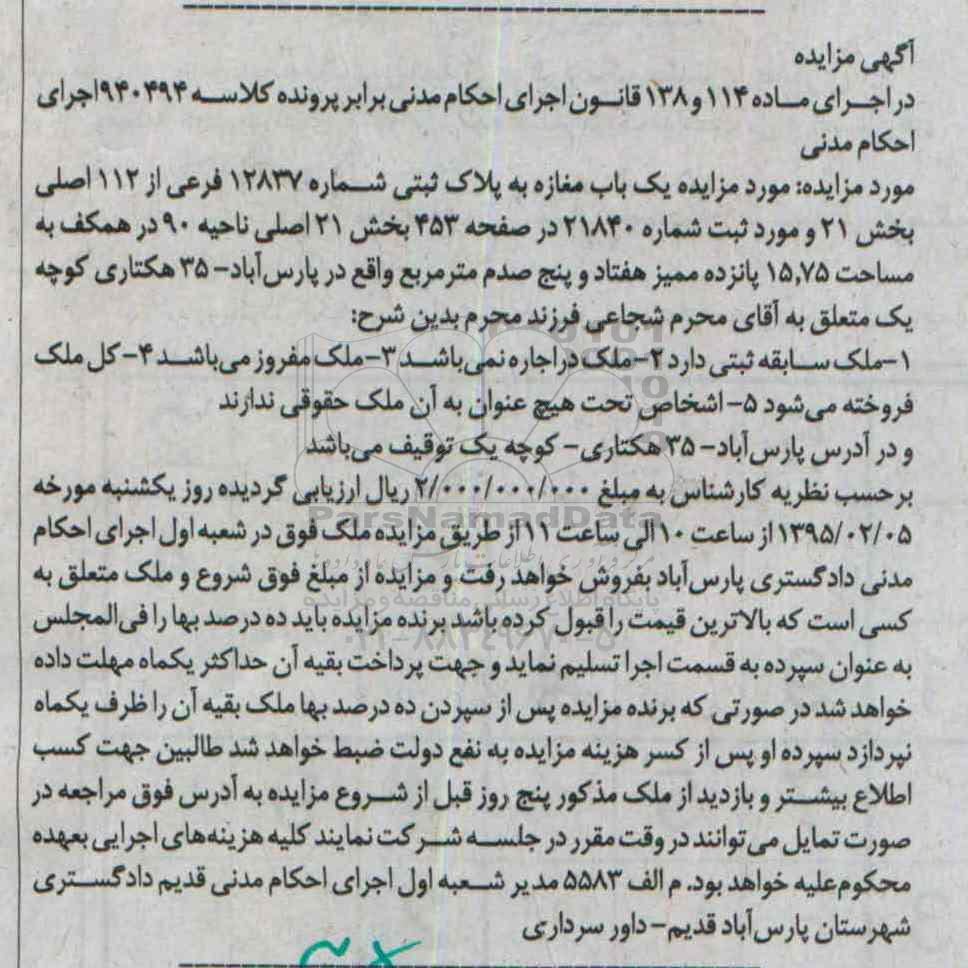 آگهی مزایده
در اجرای ماده ۱۱۴ و ۱۳۸ قانون اجرای احکام مدنی برابر پرونده کلاسه ۹۴۰۴۹۴ اجرای
احکام مدنی
مورد مزایده: مورد مزایده یک باب مغازه به پلاک ثبتی شماره ۱۲۸۳۷ فرعی از ۱۱۲ اصلی
بخش ۲۱ و مورد ثبت شماره ۲۱۸۴۰ در صفحه ۴۵۳ بخش ۲۱ اصلی ناحیه ۹۰ در همکف به
مساحت ۱۵,۷۵ پانزده ممیز هفتاد و پنج صدم مترمربع واقع در پارس‌آباد- ۳۵ هکتاری کوچه
یک متعلق به آقای محرم شجاعی فرزند محرم بدین شرح:
۱-ملک سابقه ثبتی دارد ۲-ملک در اجاره نمی‌باشد ۳-ملک مفروز می‌باشد ۴-کل ملک
فروخته می‌شود ۵- اشخاص تحت هیچ عنوان به آن ملک حقوقی ندارند
و در آدرس پارس‌آباد- ۳۵ هکتاری- کوچه یک توقیف می‌باشد
برحسب نظریه کارشناس به مبلغ ۲/۰۰۰/۰۰۰/۰۰۰ ریال ارزیابی گردیده روز یکشنبه مورخه
ParsNamadData
۱۳۹۵/۰۲/۰۵ از ساعت ۱۰ الی ساعت ۱۱ از طریق مزایده ملک فوق در شعبه اول اجرای احکام
مدنی دادگستری پارس‌آباد بفروش خواهد رفت و مزایده از مبلغ فوق شروع و ملک متعلق به
پایگاه اطلاع رسانی مناقصه و مزایده
کسی است که بالاترین قیمت را قبول کرده باشد برنده مزایده باید ده درصد بها را فی‌المجلس
به عنوان سپرده به قسمت اجرا تسلیم نماید و جهت پرداخت بقیه آن حداکثر یکماه مهلت داده
خواهد شد در صورتی که برنده مزایده پس از سپردن ده درصد بها ملک بقیه آن را ظرف یکماه
نپردازد سپرده او پس از کسر هزینه مزایده به نفع دولت ضبط خواهد شد طالبین جهت کسب
اطلاع بیشتر و بازدید از ملک مذکور پنج روز قبل از شروع مزایده به آدرس فوق مراجعه در
صورت تمایل می‌توانند در وقت مقرر در جلسه شرکت نمایند کلیه هزینه‌های اجرایی بعهده
محکوم‌علیه خواهد بود. م الف ۵۵۸۳ مدیر شعبه اول اجرای احکام مدنی قدیم دادگستری
شهرستان پارس‌آباد قدیم- داور سرداری